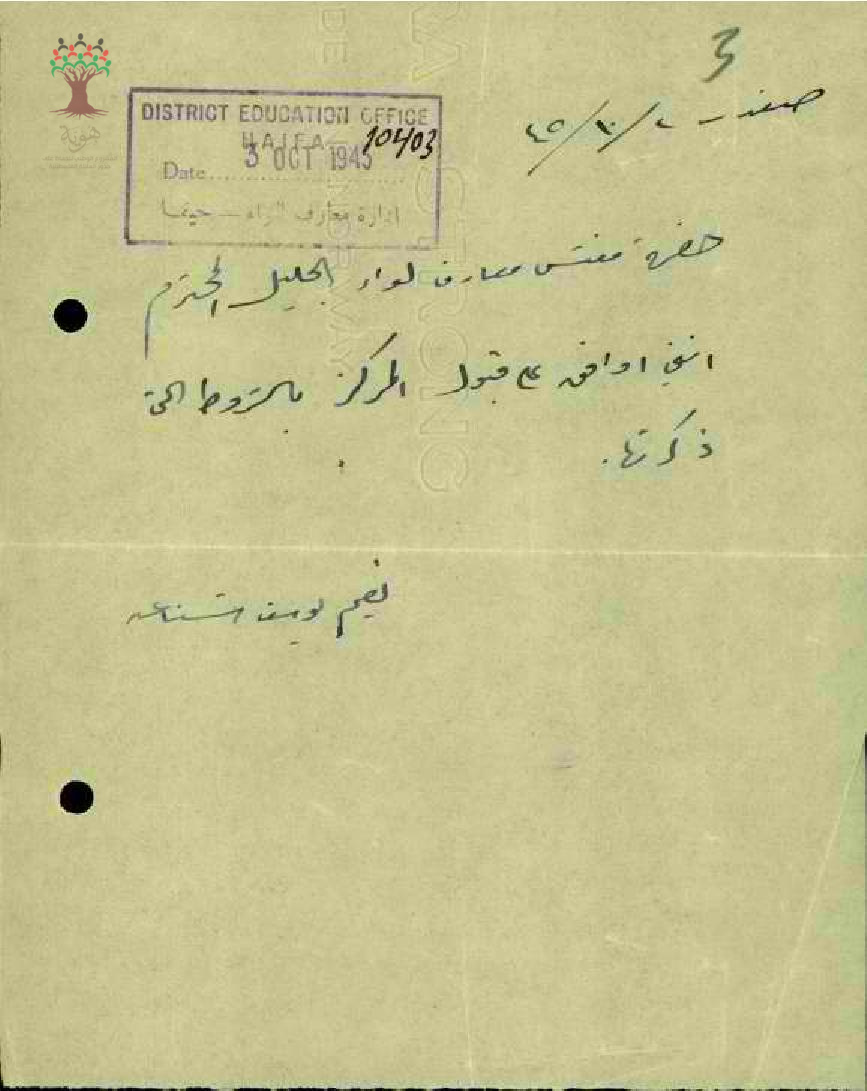 3
صفد ٢/١٠/٤٥
DISTRICT EDUCATION OFFICE
HAIFA
10403
3 OCT 1945
Date
ادارة معارف اللواء – حيفا
هوية
حضرة مفتش معارف لواء الجليل المحترم
انني اوافق على قبول المركز بالشروط التي
ذكرتها.
نعيم يوسف
STRONG